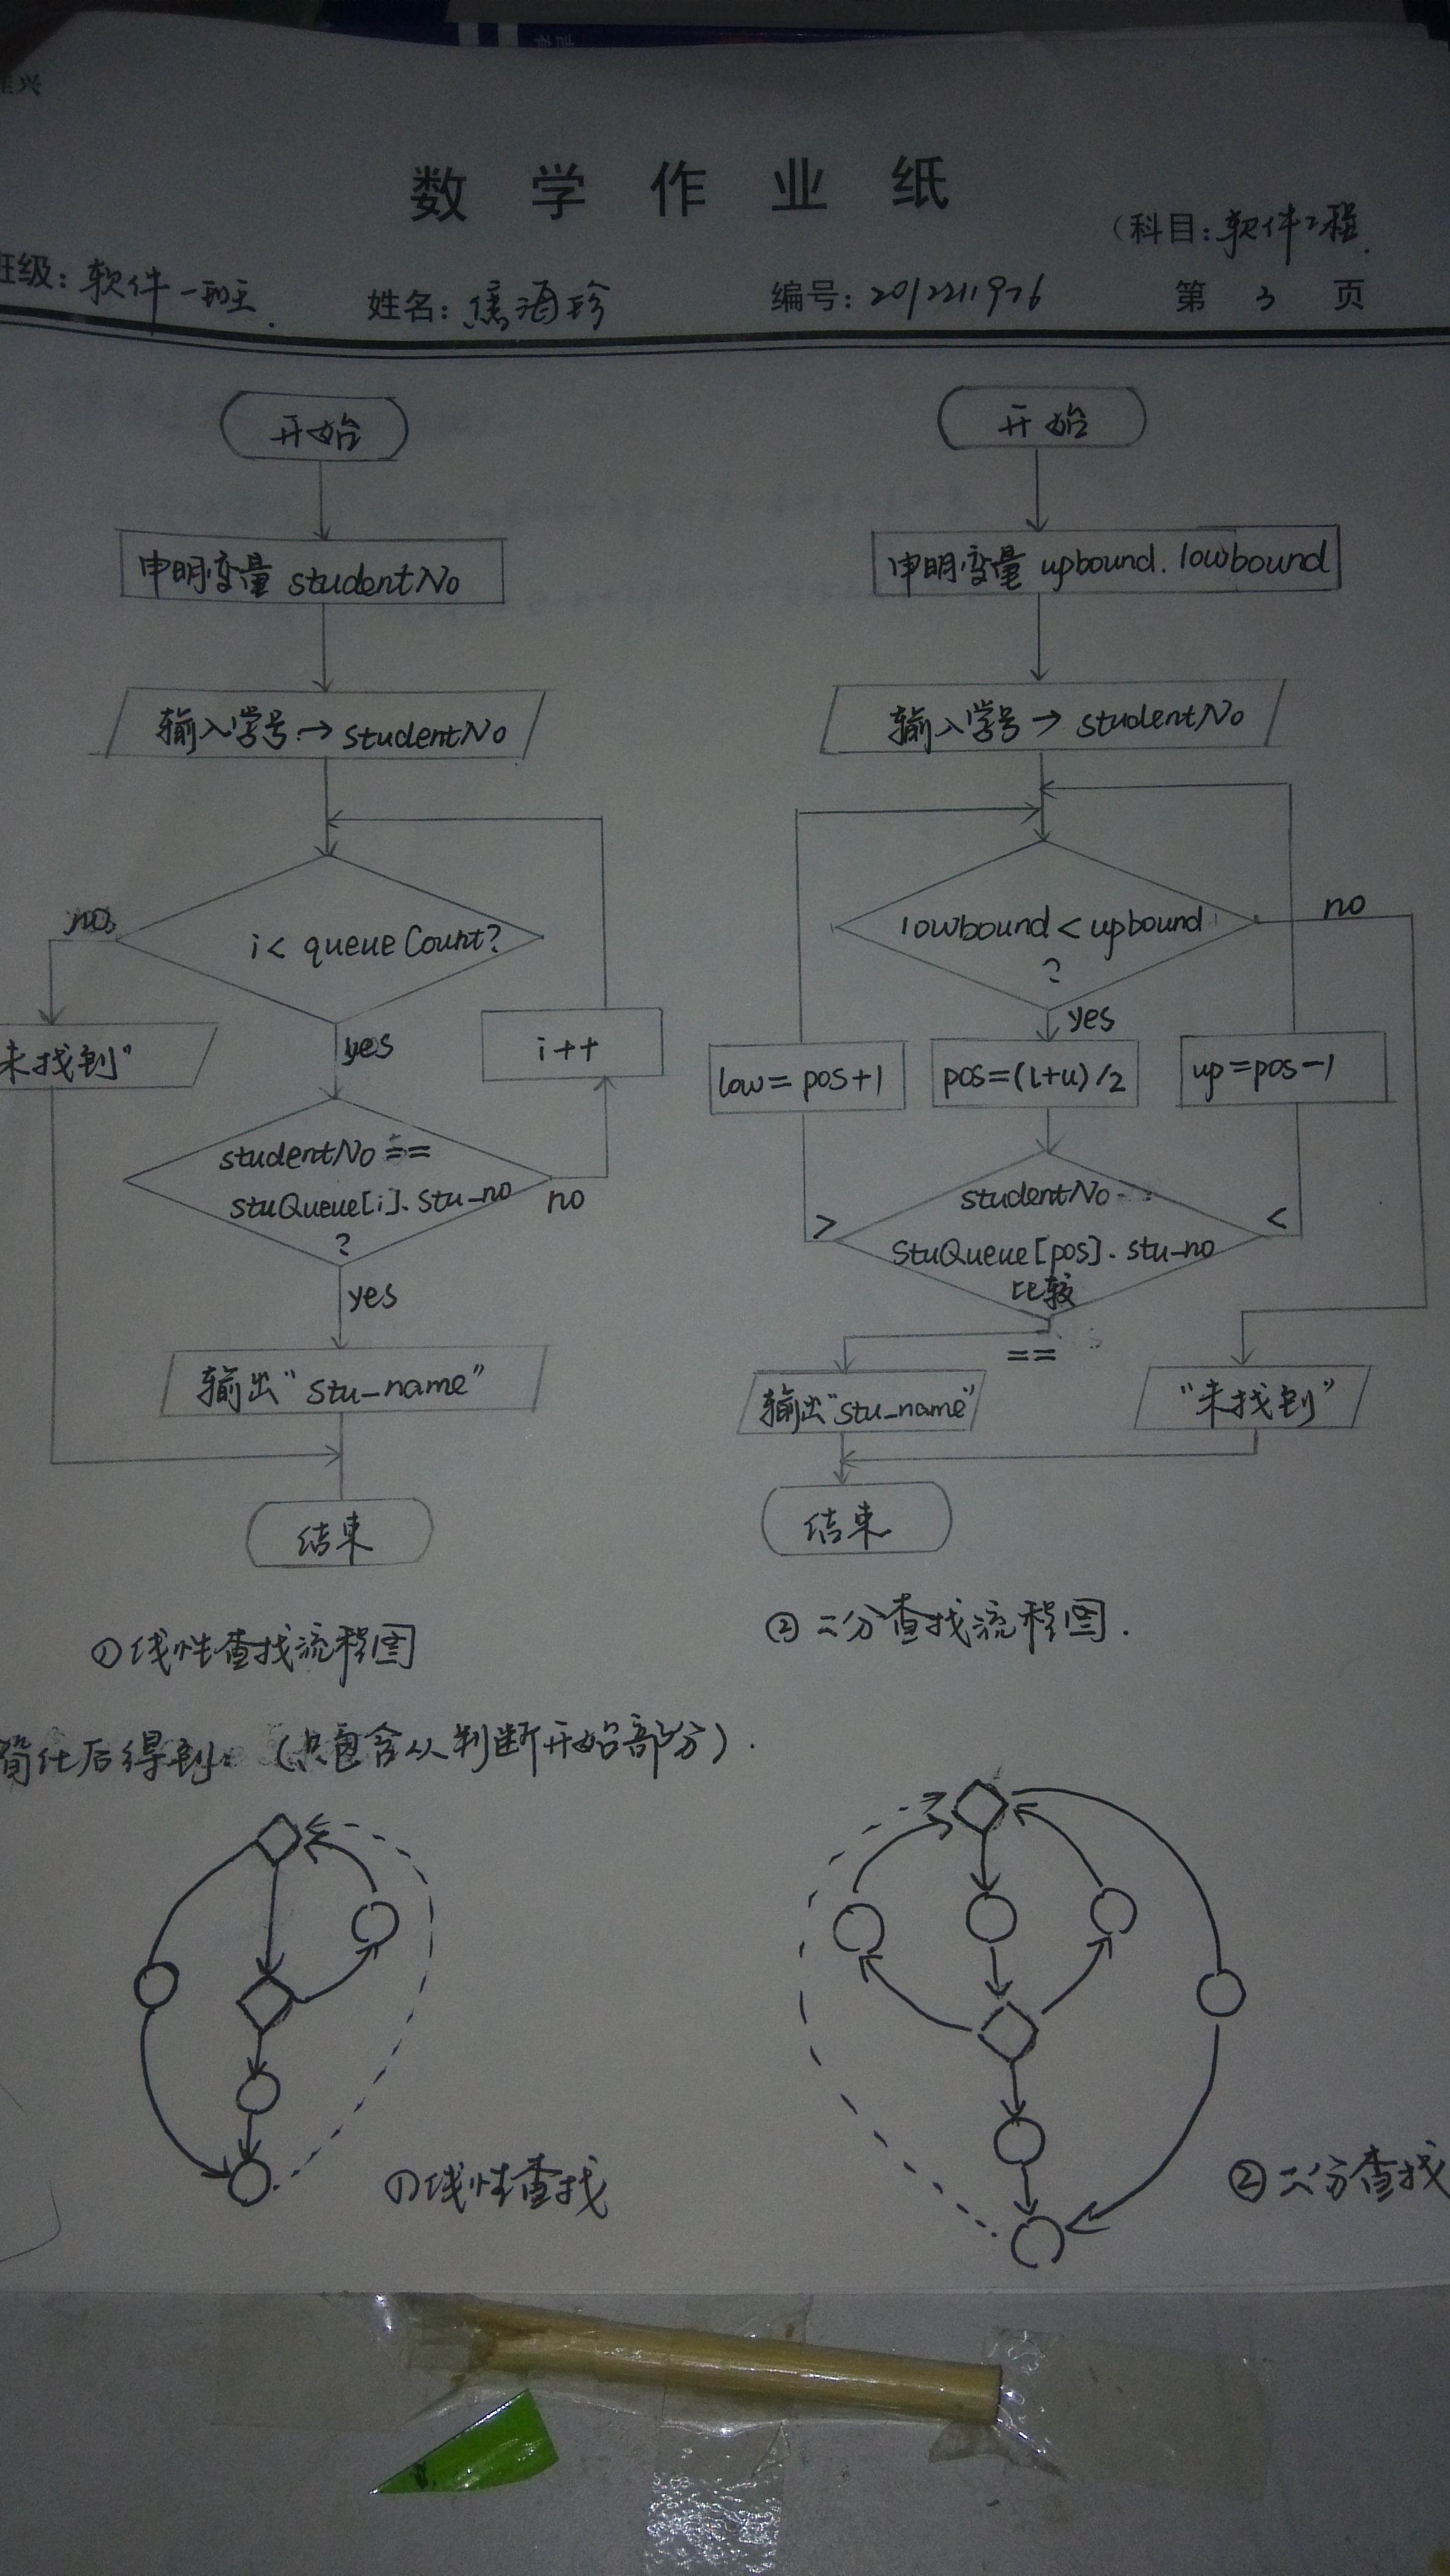 数学作业纸
(科目:软件工程
班级:软件一班.
姓名:焦酒珍
编号:2012211976
第 3 页
开始
申明变量 studentNo
输入学号→studentNo
i< queueCount?
no
yes
未找到”
i++
studentNo ==
stuQueue[i].stu_no
?
no
yes
输出“stu_name”
结束
①线性查找流程图
开始
申明变量 upbound. lowbound
输入学号→ studentNo
lowbound < upbound
?
no
yes
low= pos+1
pos=(l+u)/2
up=pos-1
studentNo
StuQueue[pos].stu-no
比较
>
<
==
输出“stu_name”
“未找到”
结束
②二分查找流程图.
简化后得到:(只包含从判断开始部分).
①线性查找
②二分查找